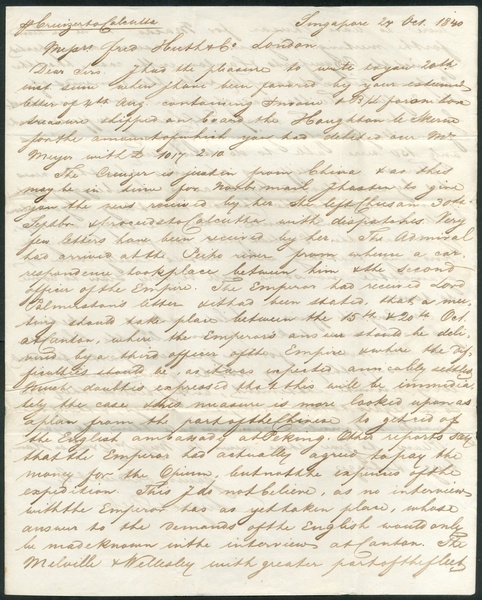 p Cruizer to Calcutta Singapore 24 Oct. 1840
Messrs. Fred Huth & Co. London
Dear Sirs. I had the pleasure to write to you 20th
inst since when I have been favored by your esteemed
letter of 4th Aug. containing Invoice & B/L for
treasure shipped on board the Houghton le Skerne
for the amount of which you had debited our Mr
Meyer with £ 1017.2.10.
The Cruizer is just in from China & as this
may be in time for mail I hasten to give
you the news received by her. She left Chusan 30th
Septbr & proceeds to Calcutta with dispatches. Very
few letters have been received by her. The Admiral
had arrived at the Peiho river from whence a cor-
respondence took place between him & the second
officer of the Empire. The Emperor had received Lord
Palmerston's letter & it had been stated, that a mee-
ting should take place between the 15th & 20th Oct.
at Canton, where the Emperor's answer should be deli-
vered by a third officer of the Empire & where the dif-
ficulties should be, as it was expected amicably settled
Much doubt is expressed that this will be immedia-
tely the case & this measure is more looked upon as
a plan from the part of the Chinese to get rid of
the English ambassady at Peking. Other reports say
that the Emperor had actually agreed to pay the
money for the Opium, but not the expenses of the
expedition. This I do not believe, as no interview
with the Emperor has as yet taken place, whose
answer to the demands of the English would only
be made known in the interview at Canton. The
Melville & Wellesley with greater part of the fleet